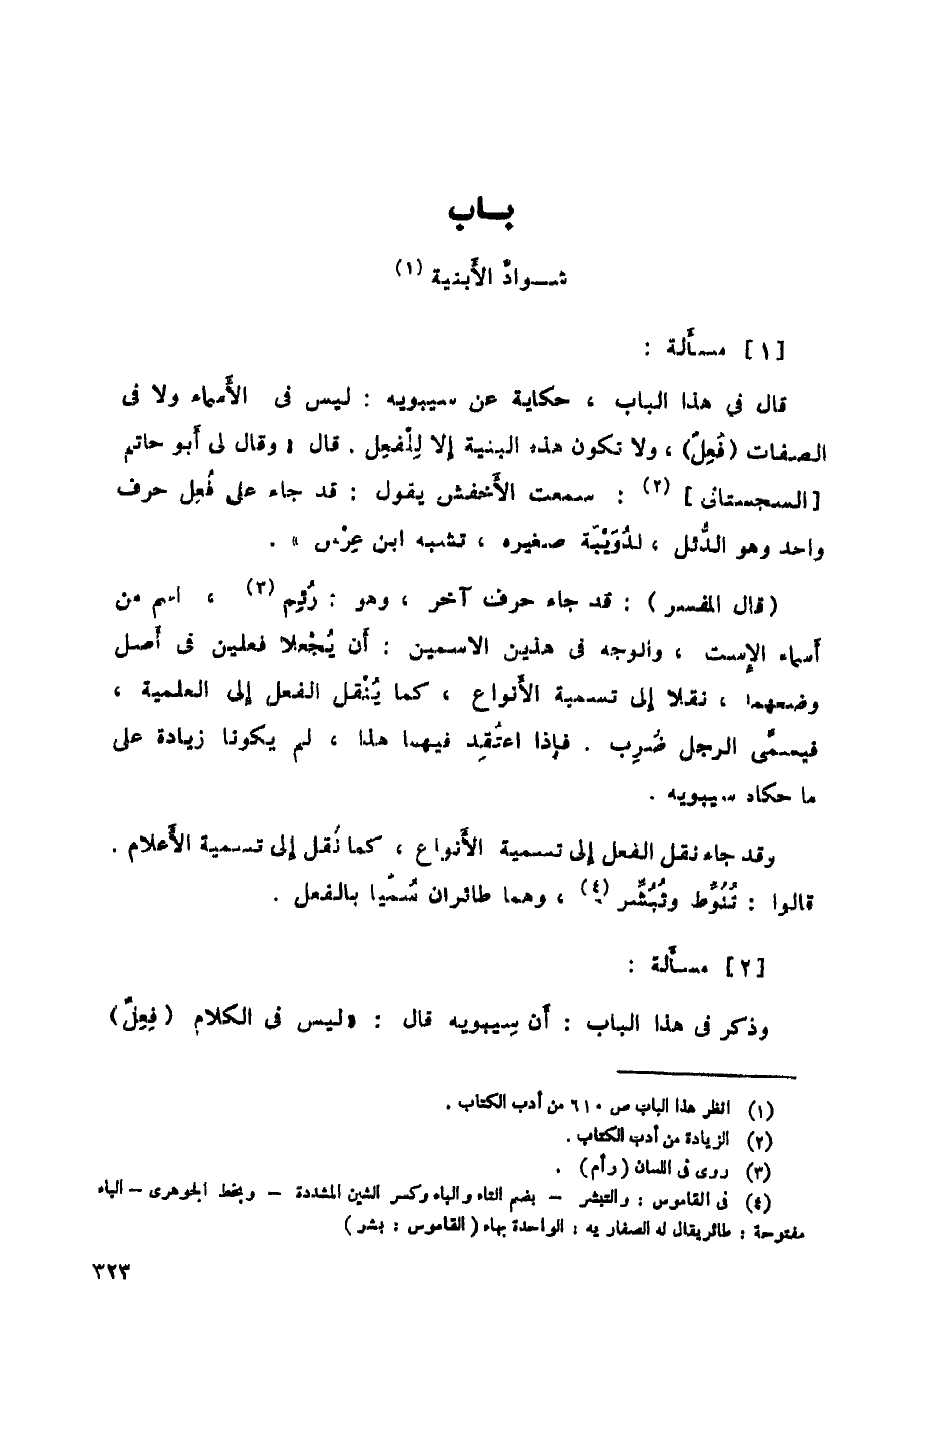 بـاب
شـواذّ الأَبنية (١)
[١] مسأَلة :
قال في هذا الباب ، حكاية عن سيبويه : ليس فى الأَسماء ولا فى
الصفات (فُعِلٌ) ، ولا تكون هذه البنية إلا لِلْفعِل . قال « وقال لى أَبو حاتم
[السجستانى] (٢) : سمعت الأَخفش يقول : قد جاء على فُعِل حرف
واحد وهو الدُّئل ، لدُوَيْبّة صغيره ، تشبه ابن عِرْس » .
(قال المفسر) : قد جاء حرف آخر ، وهو : رُئِم (٣) ، اسم من
أَسماء الإِست ، والوجه فى هذين الاسمين : أَن يُجْعلا فعلين فى أَصل
وضعهما ، نقلا إلى تسمية الأَنواع ، كما يُنْقل الفعل إلى العلمية ،
فيسمَّى الرجل ضُرِب . فإِذا اعتُقِد فيهما هذا ، لم يكونا زيادة على
ما حكاه سيبويه .
وقد جاء نقل الفعل إلى تسمية الأَنواع ، كما نُقل إلى تسمية الأَعلام .
قالوا : تُنُوِّط وتُبُشِّر (٤) ، وهما طائران سُمّيا بالفعل .
[٢] مسأَلة :
وذكر فى هذا الباب : أَن سِيبويه قال : «ليس فى الكلام (فِعِلٌ)
(١) انظر هذا الباب ص ٦١٠ من أدب الكتاب .
(٢) الزيادة من أدب الكتاب .
(٣) روى فى اللسان (رأم) .
(٤) فى القاموس : والتبشر – بضم التاء والباء وكسر الشين المشددة – وبخط الجوهرى – الباء
مفتوحة : طائر يقال له الصفاريه : الواحدة بهاء (القاموس : بشر)
٣٢٣